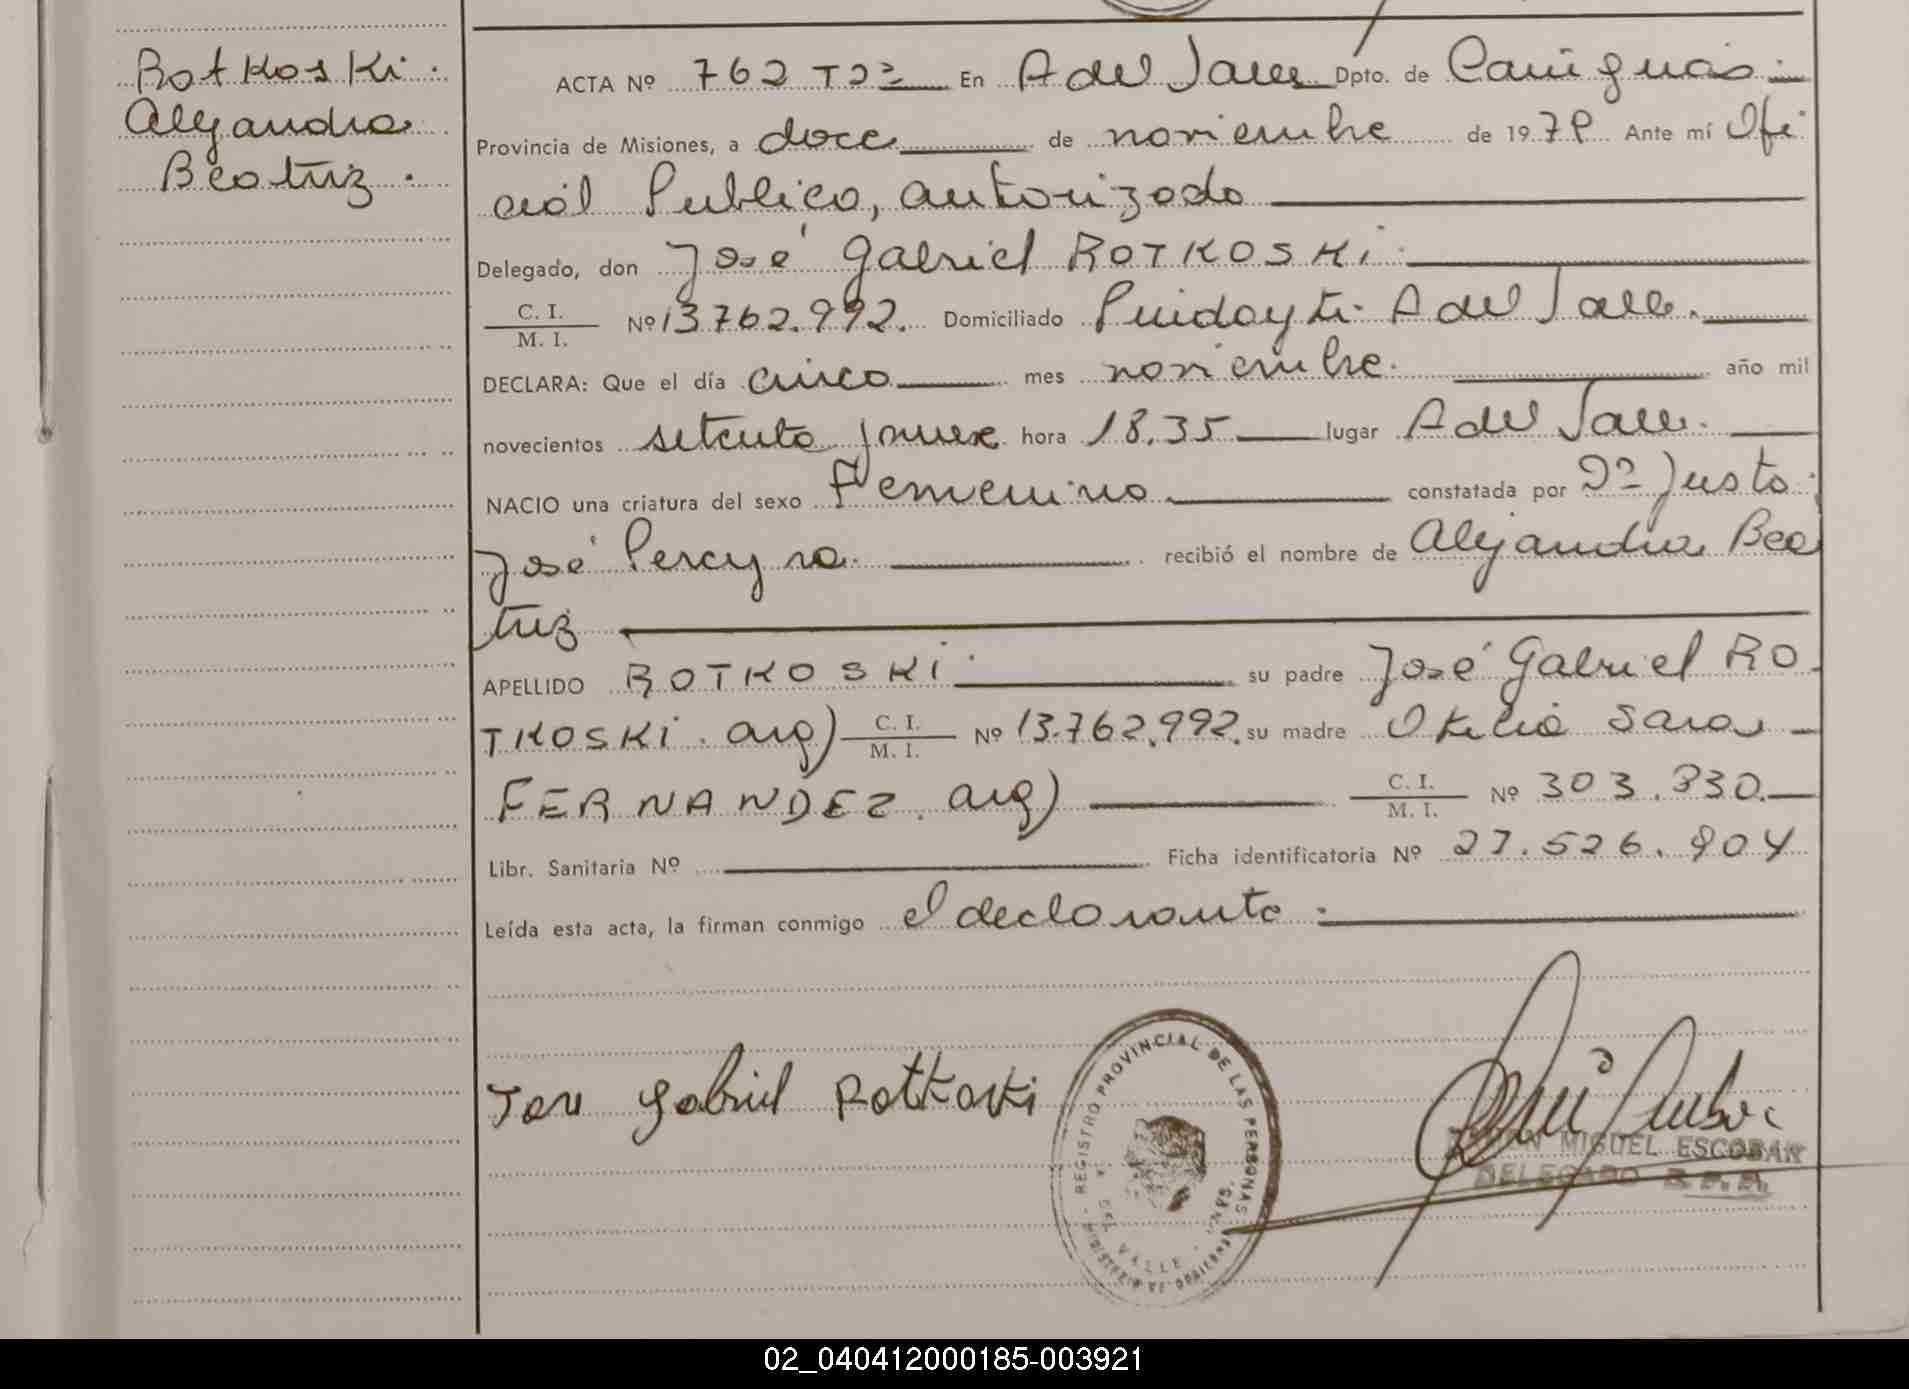 Rotkoski.
Alejandra
Beatriz.
ACTA Nº 762 T2º En A del Valle Dpto. de Cainguás
Provincia de Misiones, a doce de noviembre de 1979 Ante mí Ofi
cial Publico, autorizado
Delegado, don José Gabriel ROTKOSKi
C. I.
M. I. Nº 13.762.992. Domiciliado Pindayti A del Valle.
DECLARA: Que el día cinco mes noviembre. año mil
novecientos setenta y nueve hora 18.35 lugar A del Valle.
NACIO una criatura del sexo Femenino constatada por Dº Justo
José Pereyra. recibió el nombre de Alejandra Bea
triz
APELLIDO ROTKOSKi su padre José Gabriel RO
TKOSKi. arg) C. I.
M. I. Nº 13.762.992. su madre Otelia Sara
FERNANDEZ. arg) C. I.
M. I. Nº 303.330.
Libr. Sanitaria Nº Ficha identificatoria Nº 27.526.904
Leída esta acta, la firman conmigo el declarante
Jose Gabriel Rotkoski
REGISTRO PROVINCIAL DE LAS PERSONAS
DEL VALLE
MIGUEL ESCOBAR
DELEGADO R.P.P.
02_040412000185-003921